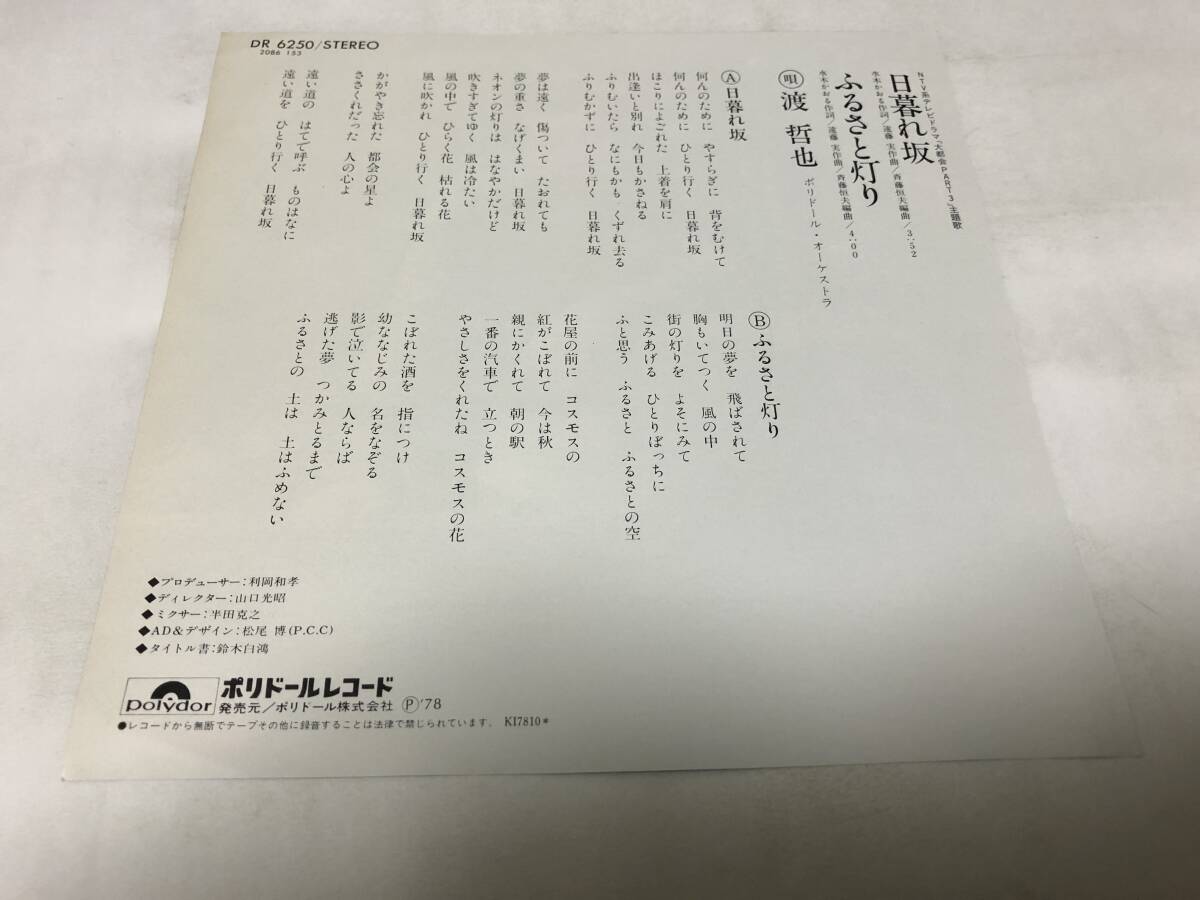 DR 6250/STEREO
2086 153
NTV系テレビドラマ「大都会PART3」主題歌
日暮れ坂
水木かおる作詞/遠藤 実作曲/斉藤恒夫編曲/3:52
ふるさと灯り
水木かおる作詞/遠藤 実作曲/斉藤恒夫編曲/4:00
唄 渡 哲也 ポリドール・オーケストラ
Ⓐ日暮れ坂
何んのために やすらぎに 背をむけて
何んのために ひとり行く 日暮れ坂
ほこりによごれた 上着を肩に
出逢いと別れ 今日もかさねる
ふりむいたら なにもかも くずれ去る
ふりむかずに ひとり行く 日暮れ坂
夢は遠く 傷ついて たおれても
夢の重さ なげくまい 日暮れ坂
ネオンの灯りは はなやかだけど
吹きすぎてゆく 風は冷たい
風の中で ひらく花 枯れる花
風に吹かれ ひとり行く 日暮れ坂
かがやき忘れた 都会の星よ
ささくれだった 人の心よ
遠い道の はてで呼ぶ ものはなに
遠い道を ひとり行く 日暮れ坂
Ⓑふるさと灯り
明日の夢を 飛ばされて
胸もいてつく 風の中
街の灯りを よそにみて
こみあげる ひとりぼっちに
ふと思う ふるさと ふるさとの空
花屋の前に コスモスの
紅がこぼれて 今は秋
親にかくれて 朝の駅
一番の汽車で 立つとき
やさしさをくれたね コスモスの花
こぼれた酒を 指につけ
幼ななじみの 名をなぞる
影で泣いてる 人ならば
逃げた夢 つかみとるまで
ふるさとの 土は 土はふめない
◆プロデューサー:利岡和孝
◆ディレクター:山口光昭
◆ミクサー:半田克之
◆AD&デザイン:松尾 博(P.C.C)
◆タイトル書:鈴木白鴻
polydor
ポリドールレコード
発売元/ポリドール株式会社 Ⓟ'78
●レコードから無断でテープその他に録音することは法律で禁じられています。 KI7810*